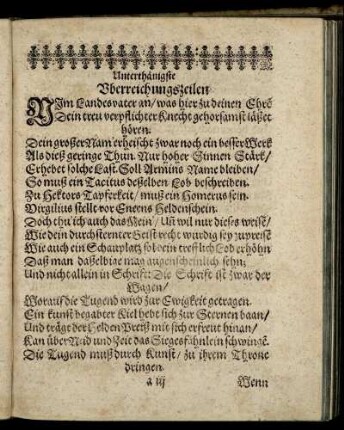 Unterthänigste
Vberreichungszeilen
NIm Landesvater an/ was hier zu deinen Ehrē
Dein treu verpflichter Knecht gehorsamst läßet
hören.
Dein großer Nam' erheischt zwar noch ein besser Werk
Als dieß geringe Thun. Nur hoher Sinnen Stärk/
Erhebet solche Last. Soll Armins Name bleiben/
So muß ein Tacitus deßelben Lob beschreiben.
Zu Hektors Tapferkeit/ muß ein Homerus sein.
Virgilius stellt vor Eneens Heldenschein.
Doch thu' ich auch das Mein/ Uñ wil nur dieses weise/
Wie dein durchsternter Geist recht würdig sey zupreise
Wie auch ein Schauplatz sol dein trefflich Lob erhöhn
Daß man daßelbige mag augenscheinlich sehn;
Und nicht allein in Schrift: Die Schrift ist zwar der
Wagen/
Worauf die Tugend wird zur Ewigkeit getragen.
Ein kunst begabter Kiel hebt sich zur Sternen baan/
Und trägt der Helden Preiß mit sich erfreut hinan/
Kan über Neid und Zeit das Siegesfähnlein schwingē.
Die Tugend muß durch Kunst/ zu ihrem Throne
dringen.
a iij Wenn